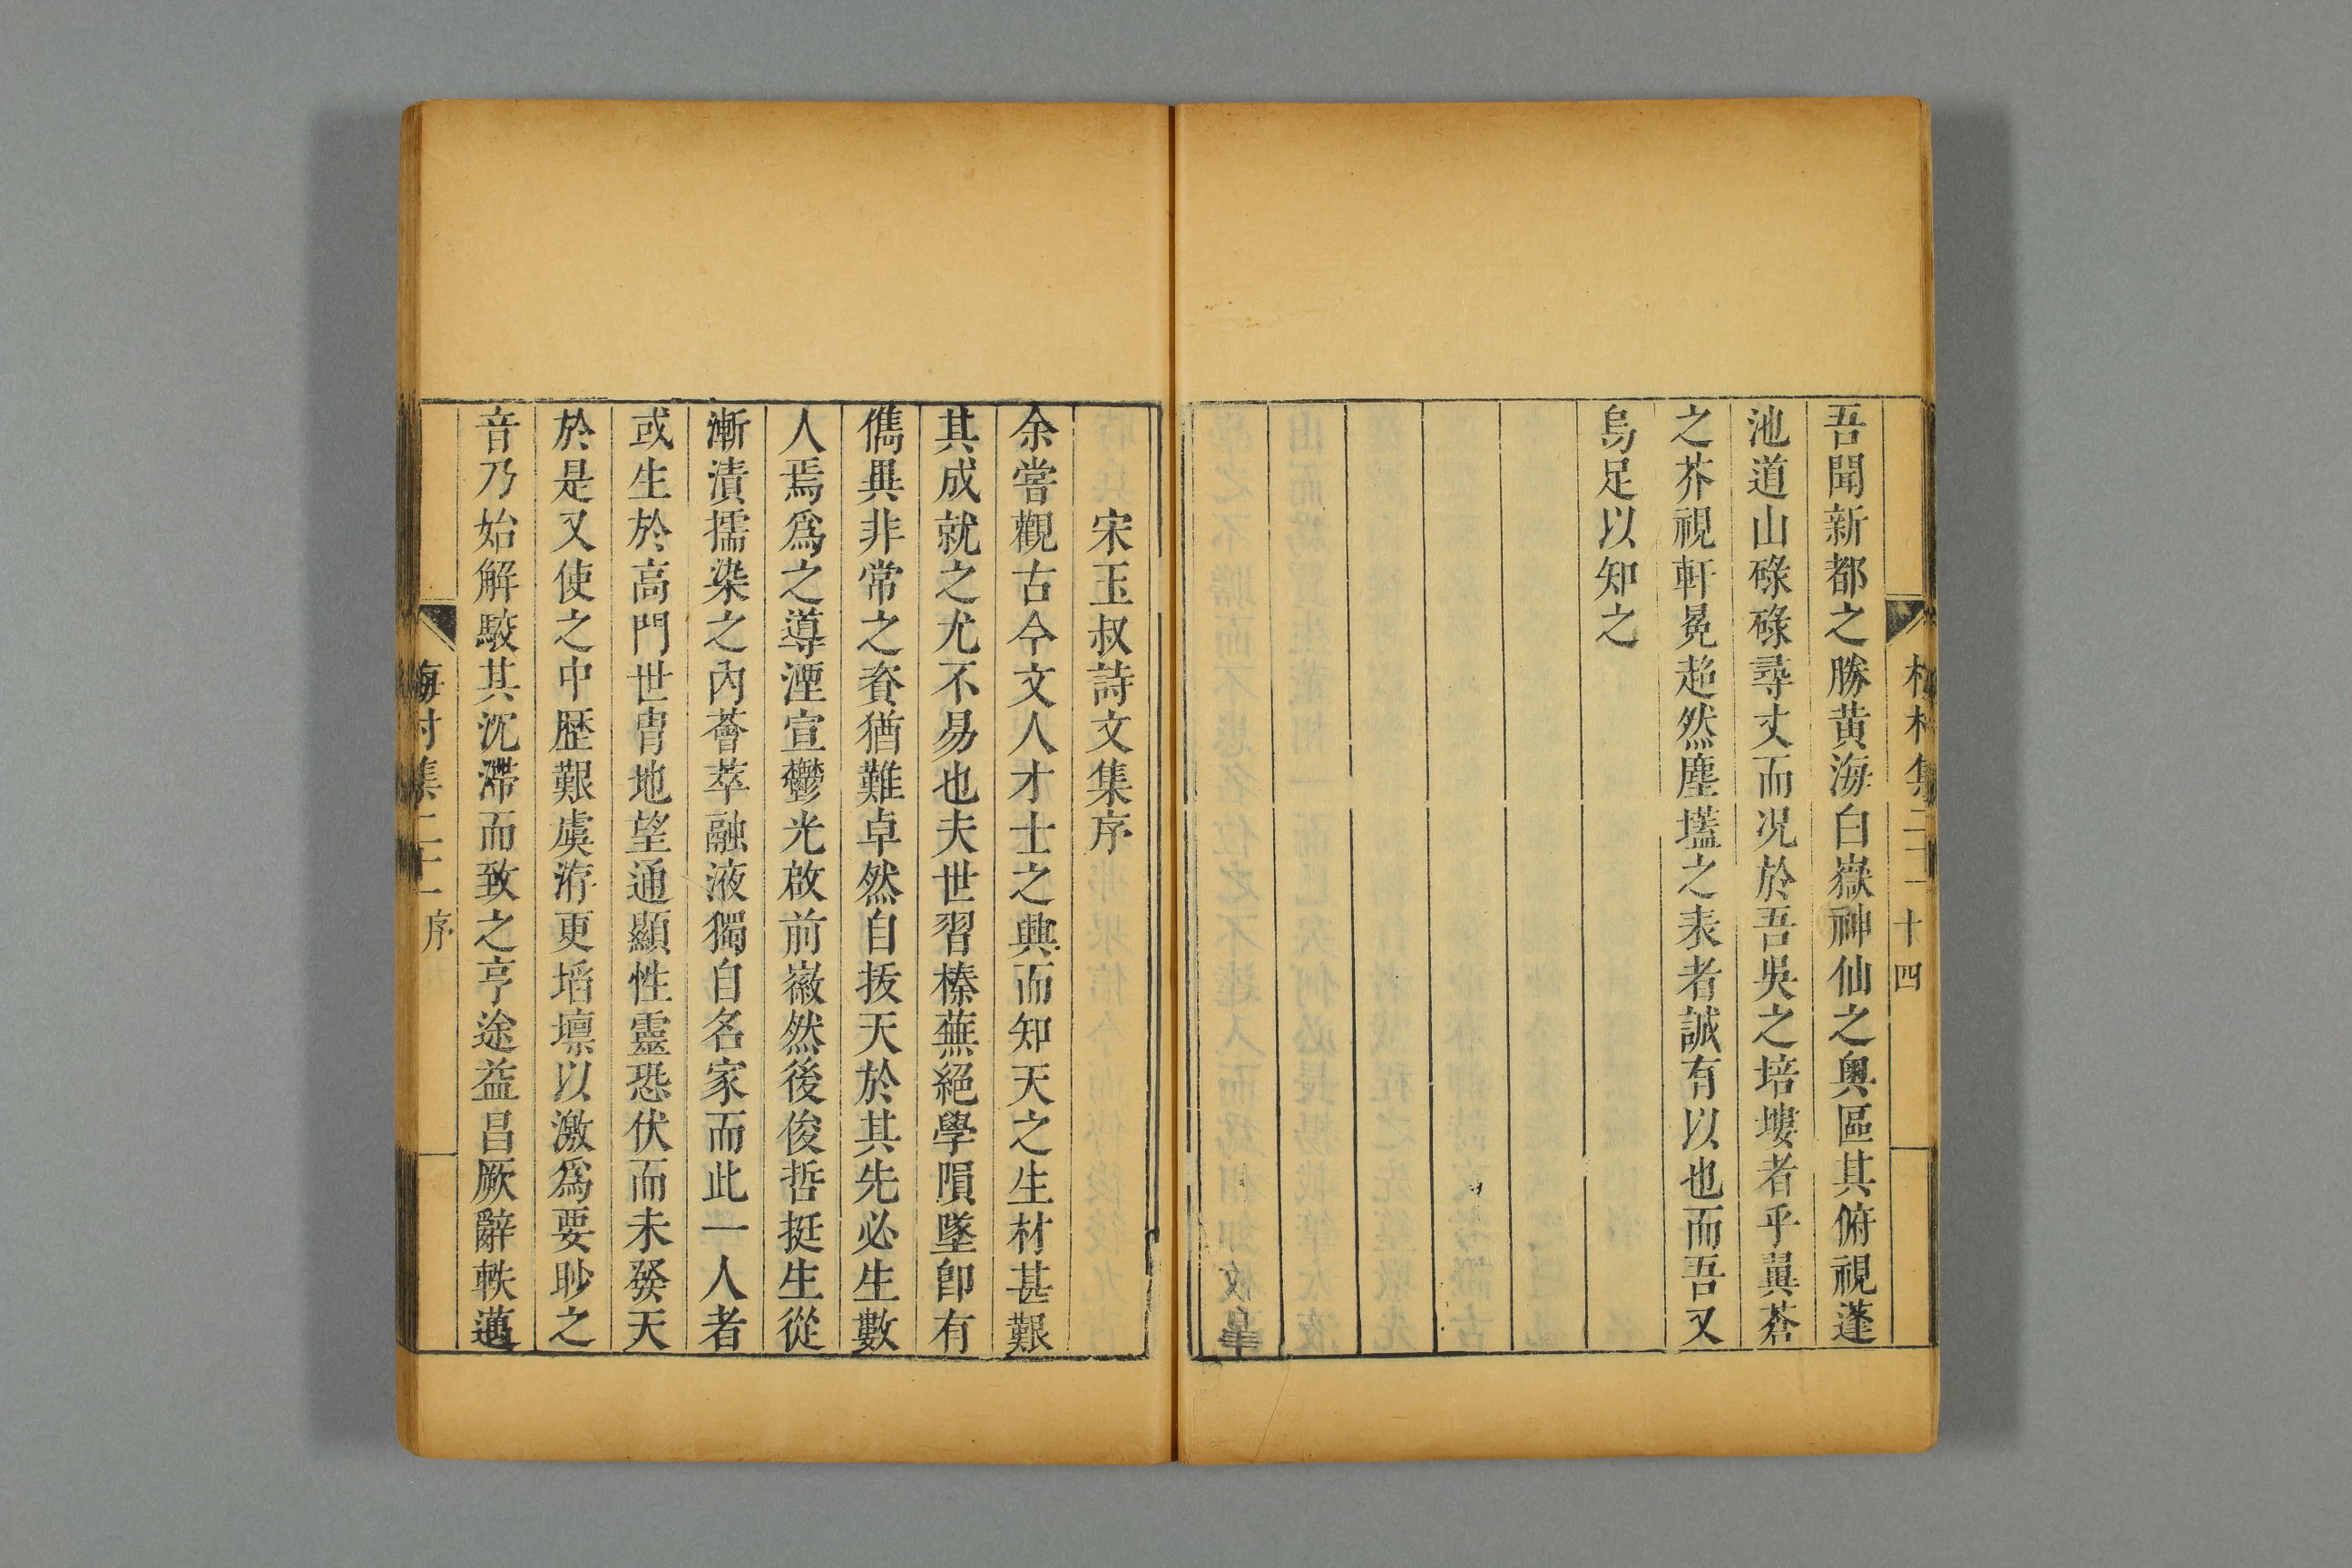 吾聞新都之勝黄海白嶽神仙之奧區其俯視蓬
池道山碌碌尋丈而况於吾吳之培塿者乎巽蒼
之芥視軒冕超然塵壒之表者誠有以也而吾又
烏足以知之
十四
宋玉叔詩文集序
余嘗觀古今文人才士之興而知天之生材甚艱
其成就之尤不易也夫世習榛蕪絕學隕墜卽有
儁異非常之資猶難卓然自抜天於其先必生數
人焉爲之導湮宣鬱光啟前徽然後俊哲挺生從
漸漬擩染之內薈萃融液獨自名家而此一人者
或生於高門世胄地望通顯性靈恐伏而未發天
於是又使之中歴艱虞洊更塪壈以激爲要眇之
音乃始解駮其沉滯而致之亨途益昌厥辭軼邁
梅村集二十一 序